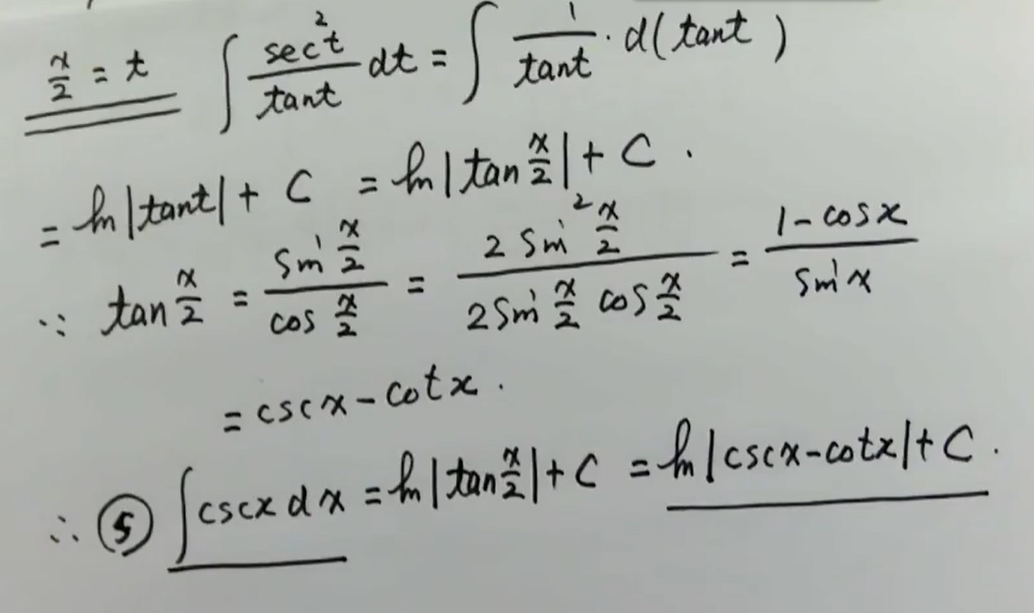 x/2 = t ∫ sec²t/tant dt = ∫ 1/tant · d(tant)
= ln|tant| + C = ln|tan x/2| + C .
∵ tan x/2 = sin x/2 / cos x/2 = 2 sin² x/2 / 2 sin x/2 cos x/2 = 1 - cosx / sinx
= cscx - cotx .
∴ ⑤ ∫cscx dx = ln|tan x/2| + C = ln|cscx-cotx| + C .